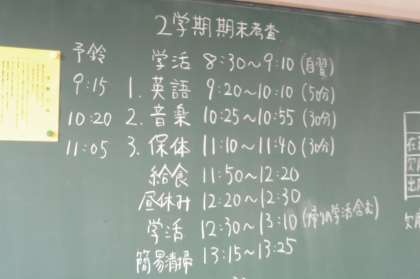 2学期期末考査
予鈴 学活 8:30~9:10 (自習)
9:15 1. 英語 9:20~10:10 (50分)
10:20 2. 音楽 10:25~10:55 (30分)
11:05 3. 保体 11:10~11:40 (30分)
給食 11:50~12:20
昼休み 12:20~12:30
学活 12:30~13:10 (帰りの学活含む)
簡易清掃 13:15~13:25